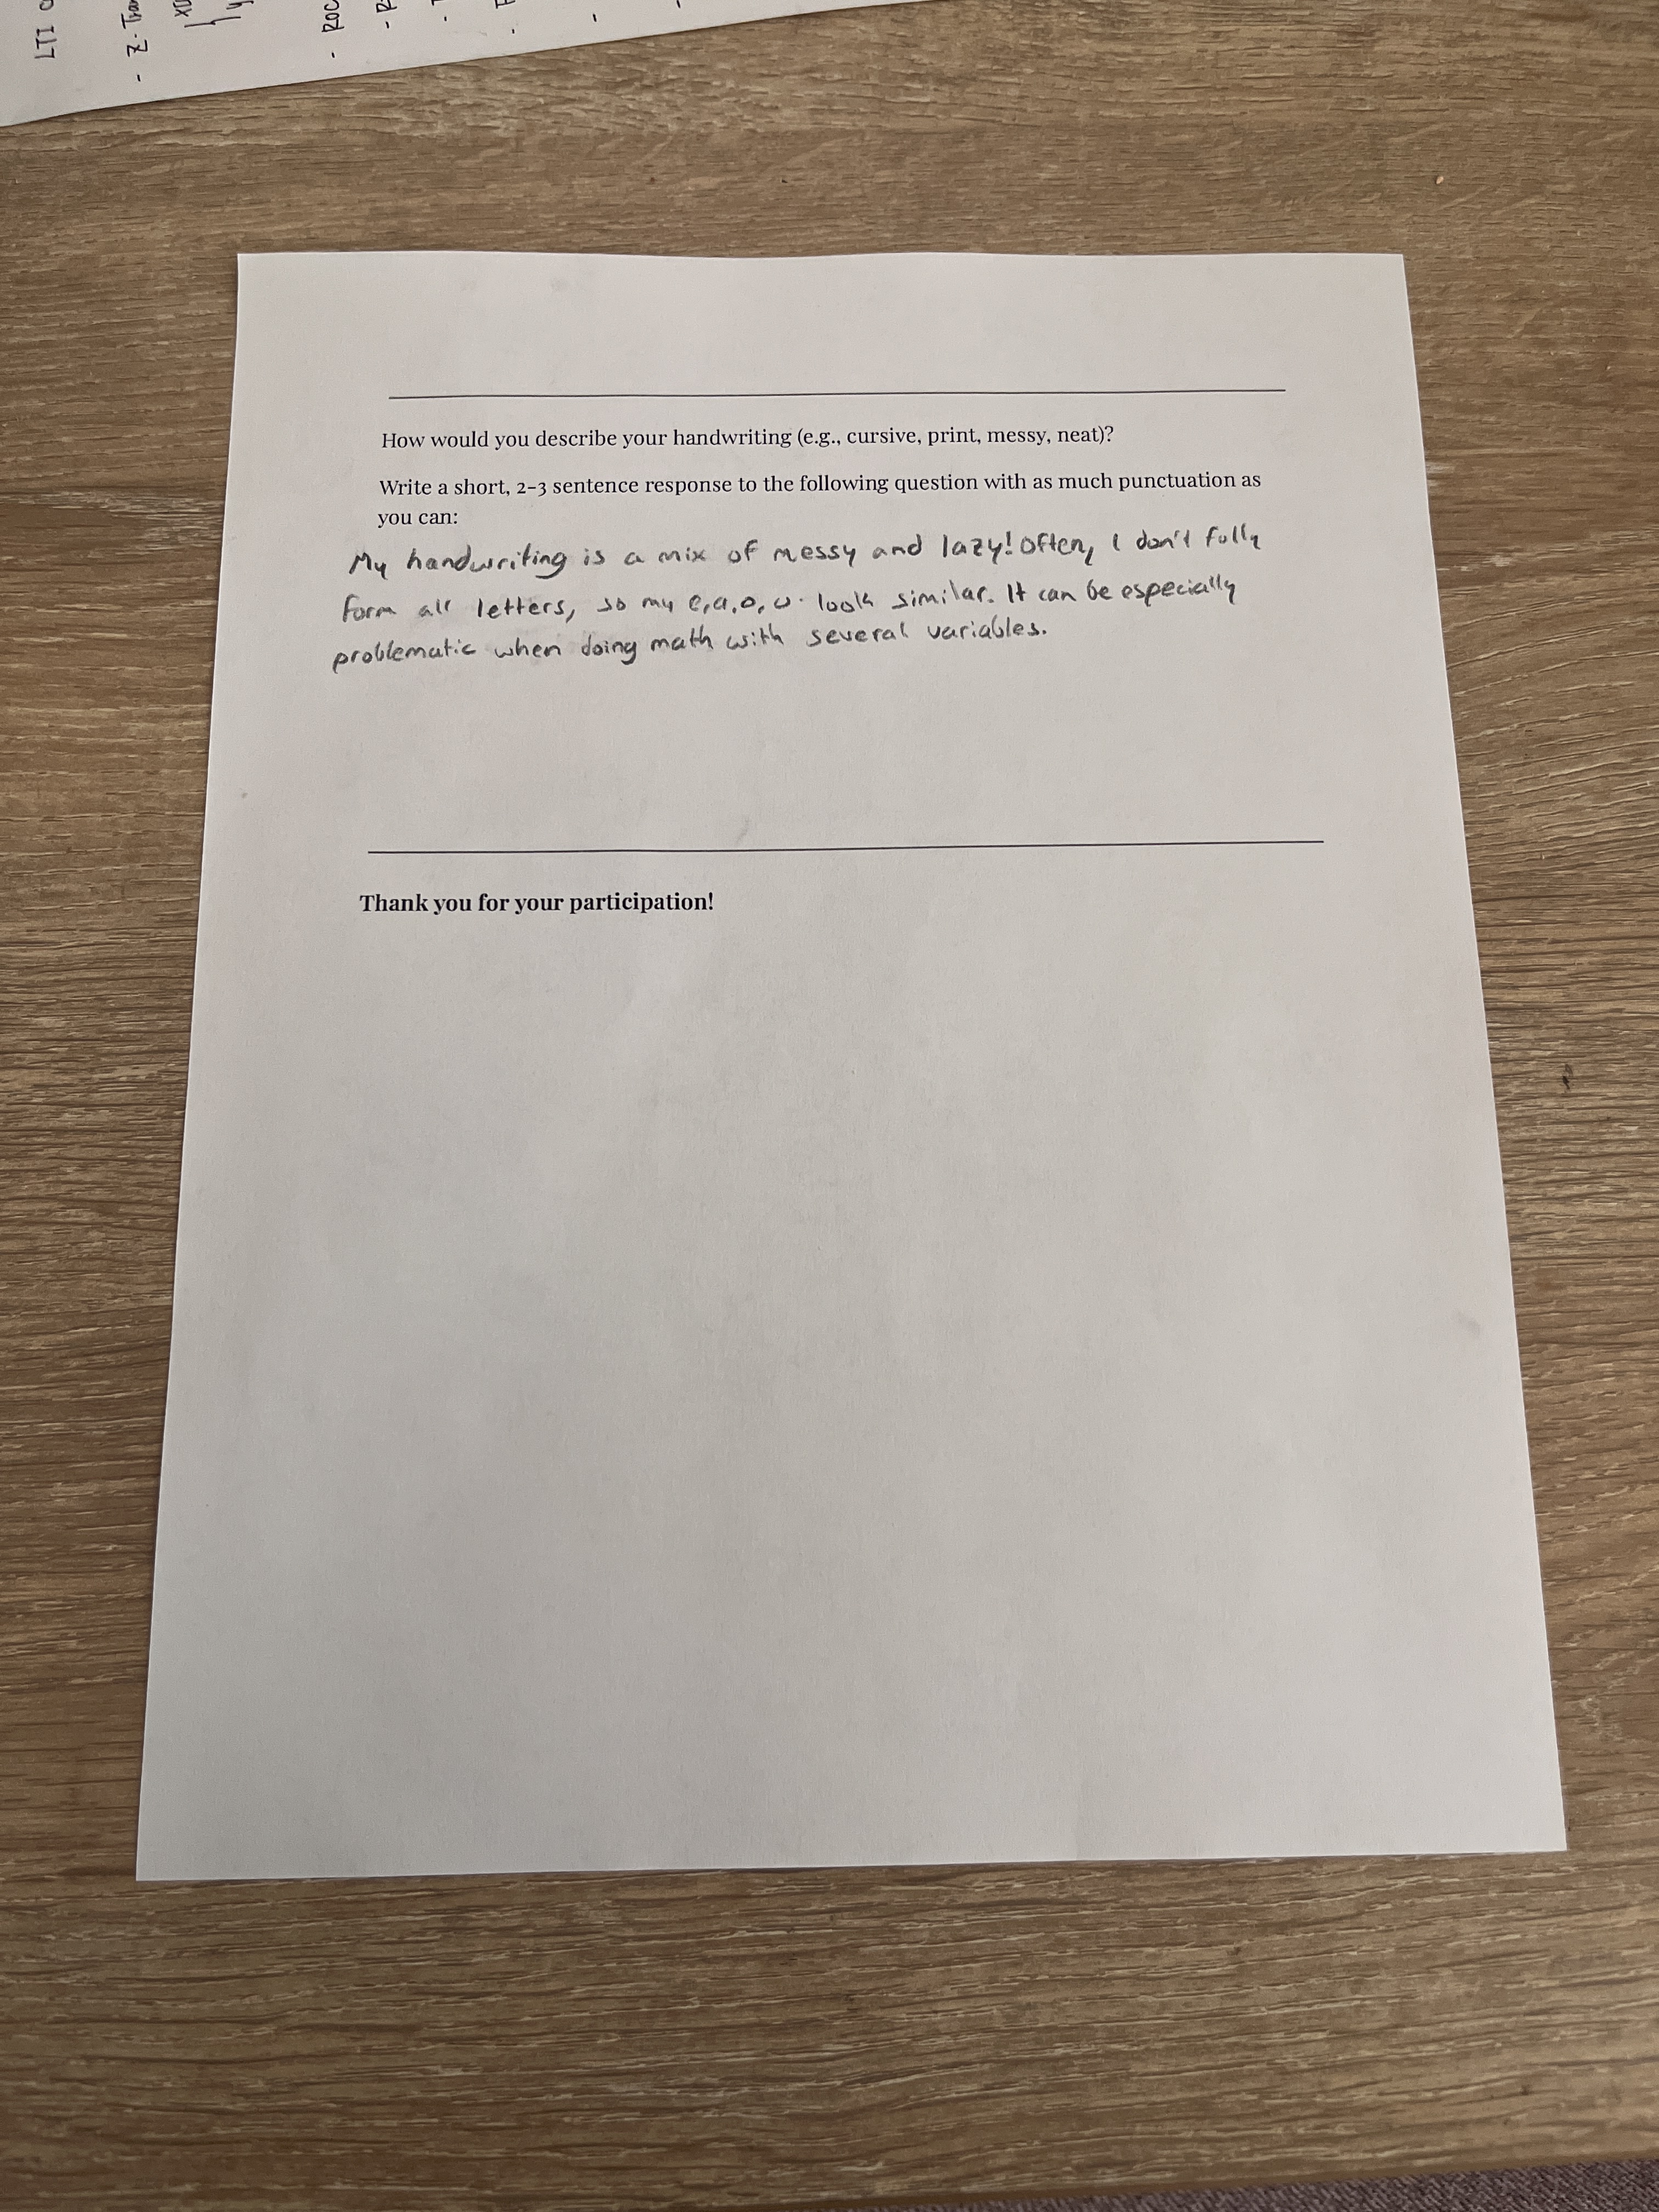 LTI
- Z-Tra
- ROC
How would you describe your handwriting (e.g., cursive, print, messy, neat)?
Write a short, 2-3 sentence response to the following question with as much punctuation as
you can:
My handwriting is a mix of messy and lazy! Often, I don't fully
form all letters, so my e, a, o, u. look similar. It can be especially
problematic when doing math with several variables.
Thank you for your participation!